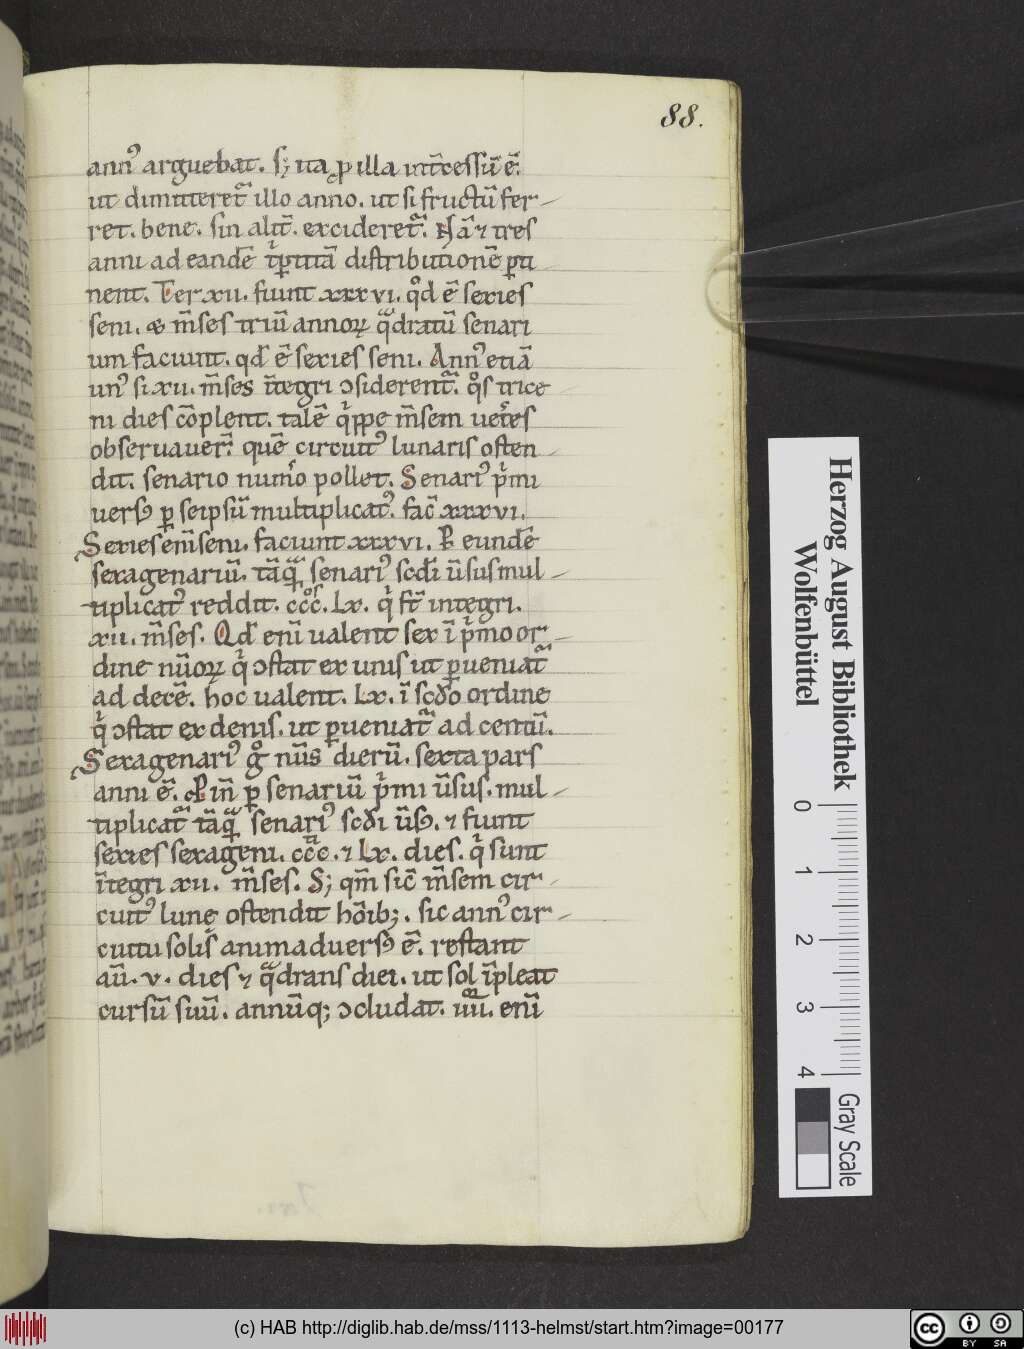 88.
annꝰ arguebat. s; ita ꝓ illa int̄cessū ē.
ut dimitteret᷑ illo anno. ut si fructū fer-
ret. bene. sin alit̄. excideret᷑. Nā ⁊ tres
anni ad eandē tͥꝑtitā distributionē ꝑti
nent. Ter xii. fiunt xxxvi. qͦd ē series
seni. & m̄ses triū annoꝝ qͣdratū senari
um faciunt. qd̄ ē series seni. Annꝰ etiā
unꝰ si xii. m̄ses ītegri ↄsiderent᷑. qͦs trice
ni dies cōplent. talē qͥppe m̄sem uet̄es
obseruauer̄. quē circuitꝰ lunaris osten-
dit. senario num̄o pollet. Senariꝰ pͥmi
uersꝰ ꝑ seipsū multiplicatꝰ. fac̄ xxxvi.
Series eni᷑ seni. faciunt xxxvi. P eundē
sexagenariū. tāqͣ᷑ senariꝰ scd̄i ūsus mul-
tiplicatꝰ reddit. cccͦ. Lx. qͥ st̄ integri.
xii. m̄ses. Qd̄ enī ualent sex ī pͥmo or-
dine nūoꝝ qͥ ↄstat ex unis ut ꝑueniat᷑
ad decē. hoc ualent. Lx. ī scd̄o ordine
qͥ ↄstat ex denis. ut ꝑueniat᷑ ad centū.
Sexagenariꝰ gͦ nūs dierū. sexta pars
anni ē. P in̄ ꝑ senariū pͥmi ūsus. mul-
tiplicat᷑ tāqͣ᷑ senariꝰ scd̄i ūsꝰ. ⁊ fiunt
series sexageni. cccͣ. ⁊ Lx. dies. qͥ sunt
ītegri xii. m̄ses. S; qm̄ sic̄ m̄sem cir-
cuitꝰ lunę ostendit hōib;. sic annꝰ cir-
cuitu solis animaduersꝰ ē. restant
aū. v. dies ⁊ qͣdrans diei. ut sol īpleat
cursū suū. annūq; ↄcludat. iiii. enī
Herzog August Bibliothek
Wolfenbüttel
0 1 2 3 4
Gray Scale
(c) HAB http://diglib.hab.de/mss/1113-helmst/start.htm?image=00177
cc BY SA